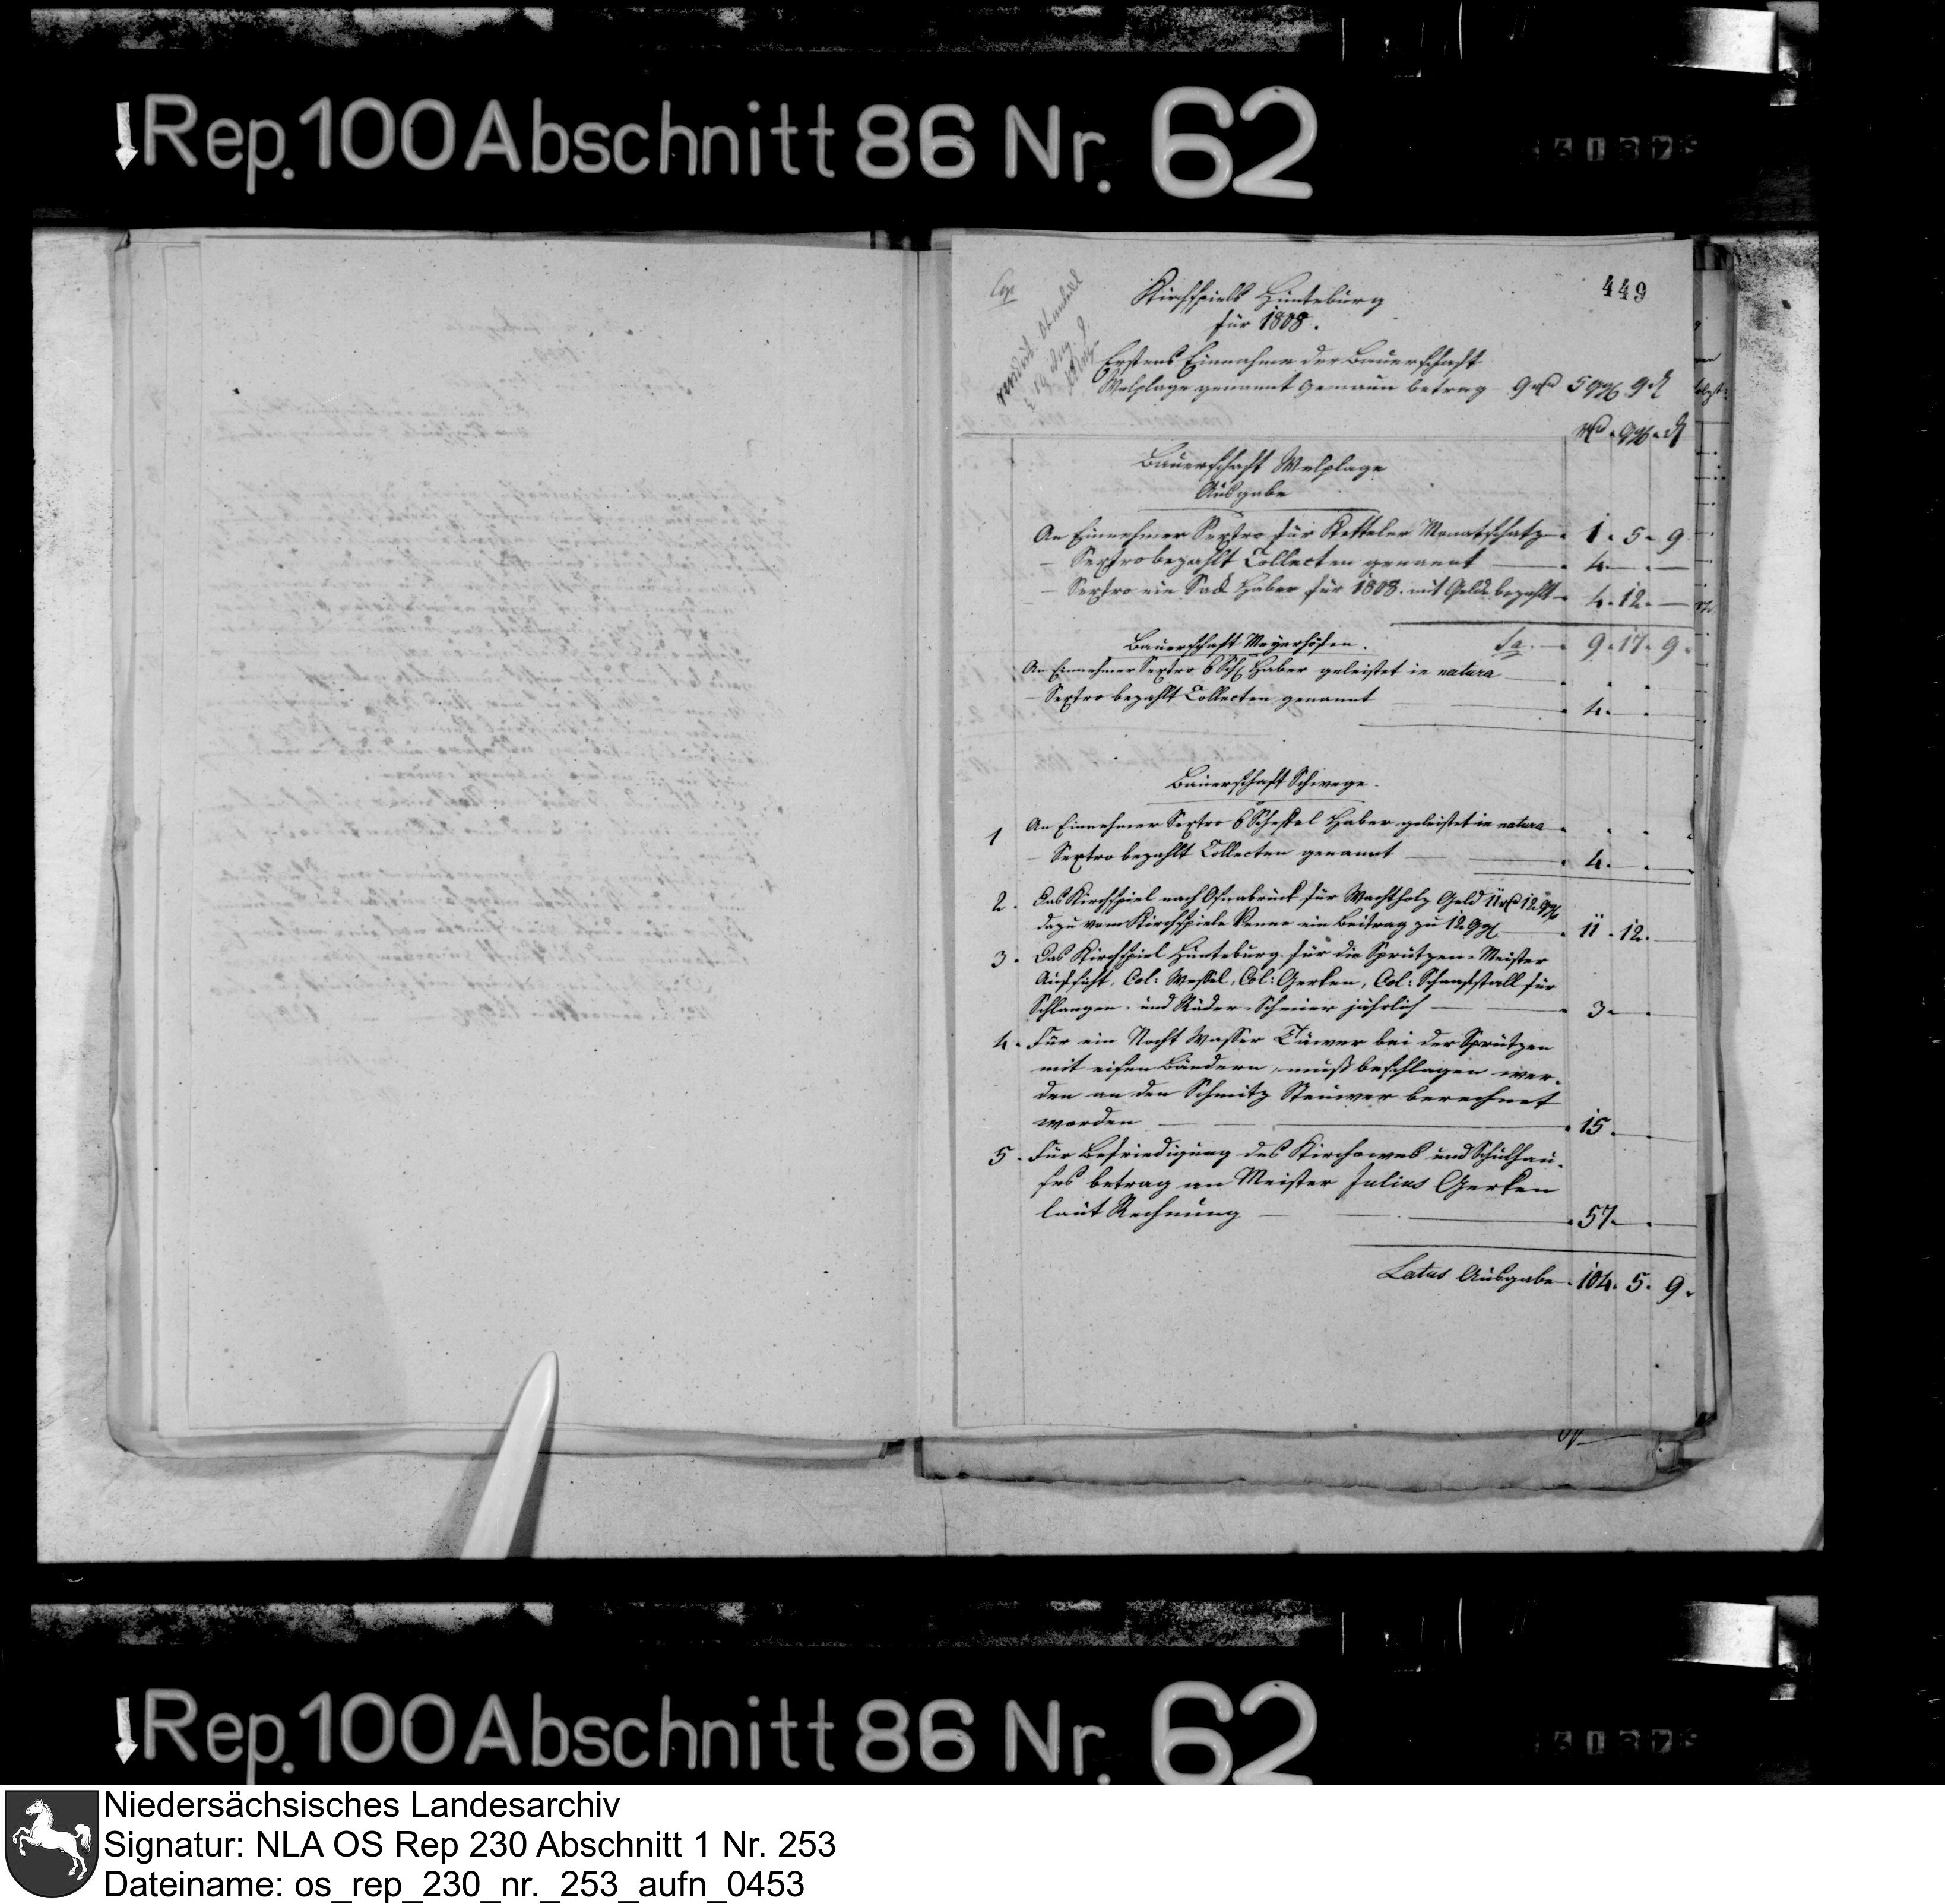 Rep. 100 Abschnitt 86 Nr. 62
449
Kirchspiels Hunteburg
für 1808.
Erstens Einnahme der Bauerschaft
Welplage genannt genaun betrag 9 rh 5 ggl 9 d
rh. ggl. d
Bauerschaft Welplage
Ausgabe
An Einnehmer Sextro für Ketteler Monatschatz 1. 5. 9
— Sextro bezahlt Collecten genannt — 4. —. —
— Sextro ein Sack Haber für 1808. mit Gelde bezahlt 4. 12. —
Sa. — 9. 17. 9.
Bauerschaft Meyerhöfen.
An Einnehmer Sextro 6 Schl Haber geleistet in natura — . . .
— Sextro bezahlt Collecten genannt — 4. .
Bauerschaft Schwege.
1 An Einnehmer Sextro 6 Scheffel Haber geleistet in natura . . .
— Sextro bezahlt Collecten genannt — 4. .
2. Das Kirchspiel nach Osnabrück für Wachtholz Geld 11 rh 12 ggl
dazu vom Kirchspiele Venne ein Beitrag zu 12 ggl — 11. 12. —
3. Das Kirchspiel Hunteburg für die Sprützen-Meister
Aufsicht, Col: Wessel, Col: Gerken, Col: Schaafstall für
Schlangen- und Räder-Schmier jährlich — 3. .
4. Für ein Nocht Wasser Täwer bei der Sprützen
mit eisen Bändern, muß beschlagen wer-
den an den Schmitz Steuwer berechnet
worden — 15. —
5. Für Befriedigung des Kirchowes und Schulhau-
ses betrag an Meister Julius Gerken
laut Rechnung — 57. .
Latus Ausgabe 104. 5. 9.
Rep. 100 Abschnitt 86 Nr. 62
Niedersächsisches Landesarchiv
Signatur: NLA OS Rep 230 Abschnitt 1 Nr. 253
Dateiname: os_rep_230_nr._253_aufn_0453